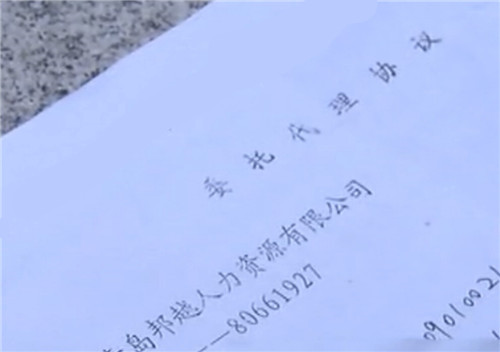 委托代理协议
岛邦越人力资源有限公司
80661927
09010021